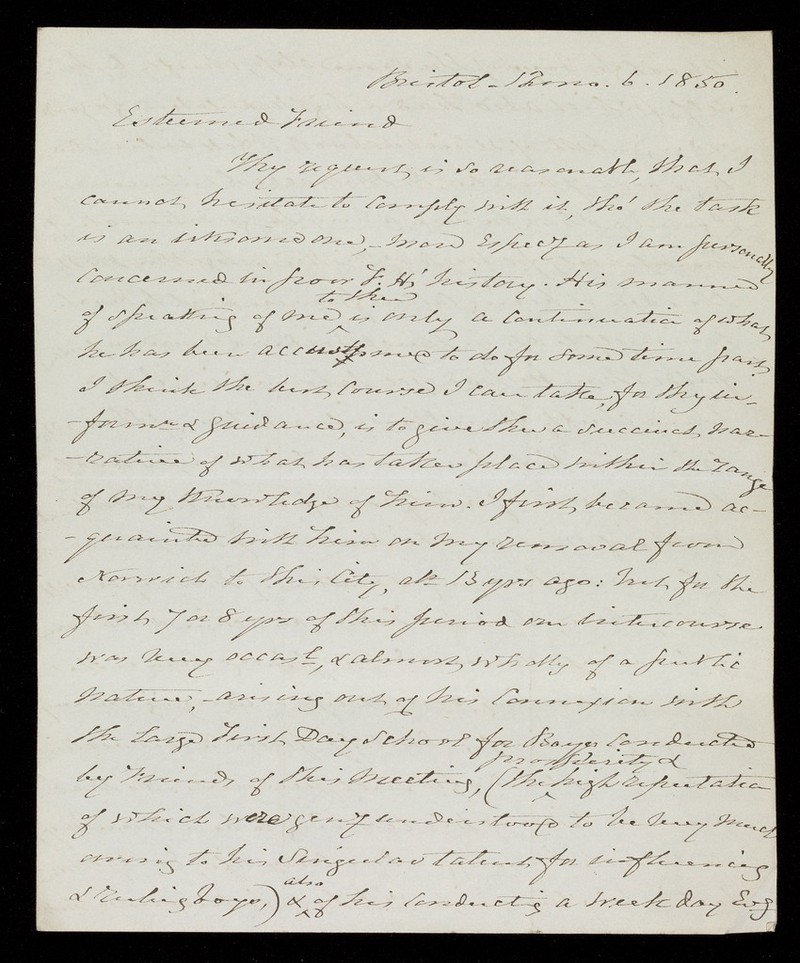 Bristol - 12 mo. 6. 1850.
Esteemed Friend
Thy request is so reasonable, that I
cannot hesitate to comply with it, tho' the task
is an irksome one, - more Especy as I am personally
concerned in poor F. H's history. His manner
to thee
of speaking of me is only a continuation of what
he has been accustomed to do for some time past,
I think the best course I can take, for thy in-
-formn & guidance, is to give thee a succinct nar-
-rative of what has taken place within the range
of my knowledge of him. I first became ac-
-quainted with him on my removal from
Norwich to this City, abt 13 yrs ago: but for the
first 7 or 8 yrs of this period our intercourse
was very occasl, & almost wholly of a public
nature, - arising out of his connexion with
the large First Day School for Boys conducted
prosperity &
by Friends of this Meeting, (the high reputation
of which were geny understood to be very much
owing to his singular talent for influencing
also
& ruling boys,) & of his conducting a week day Evg